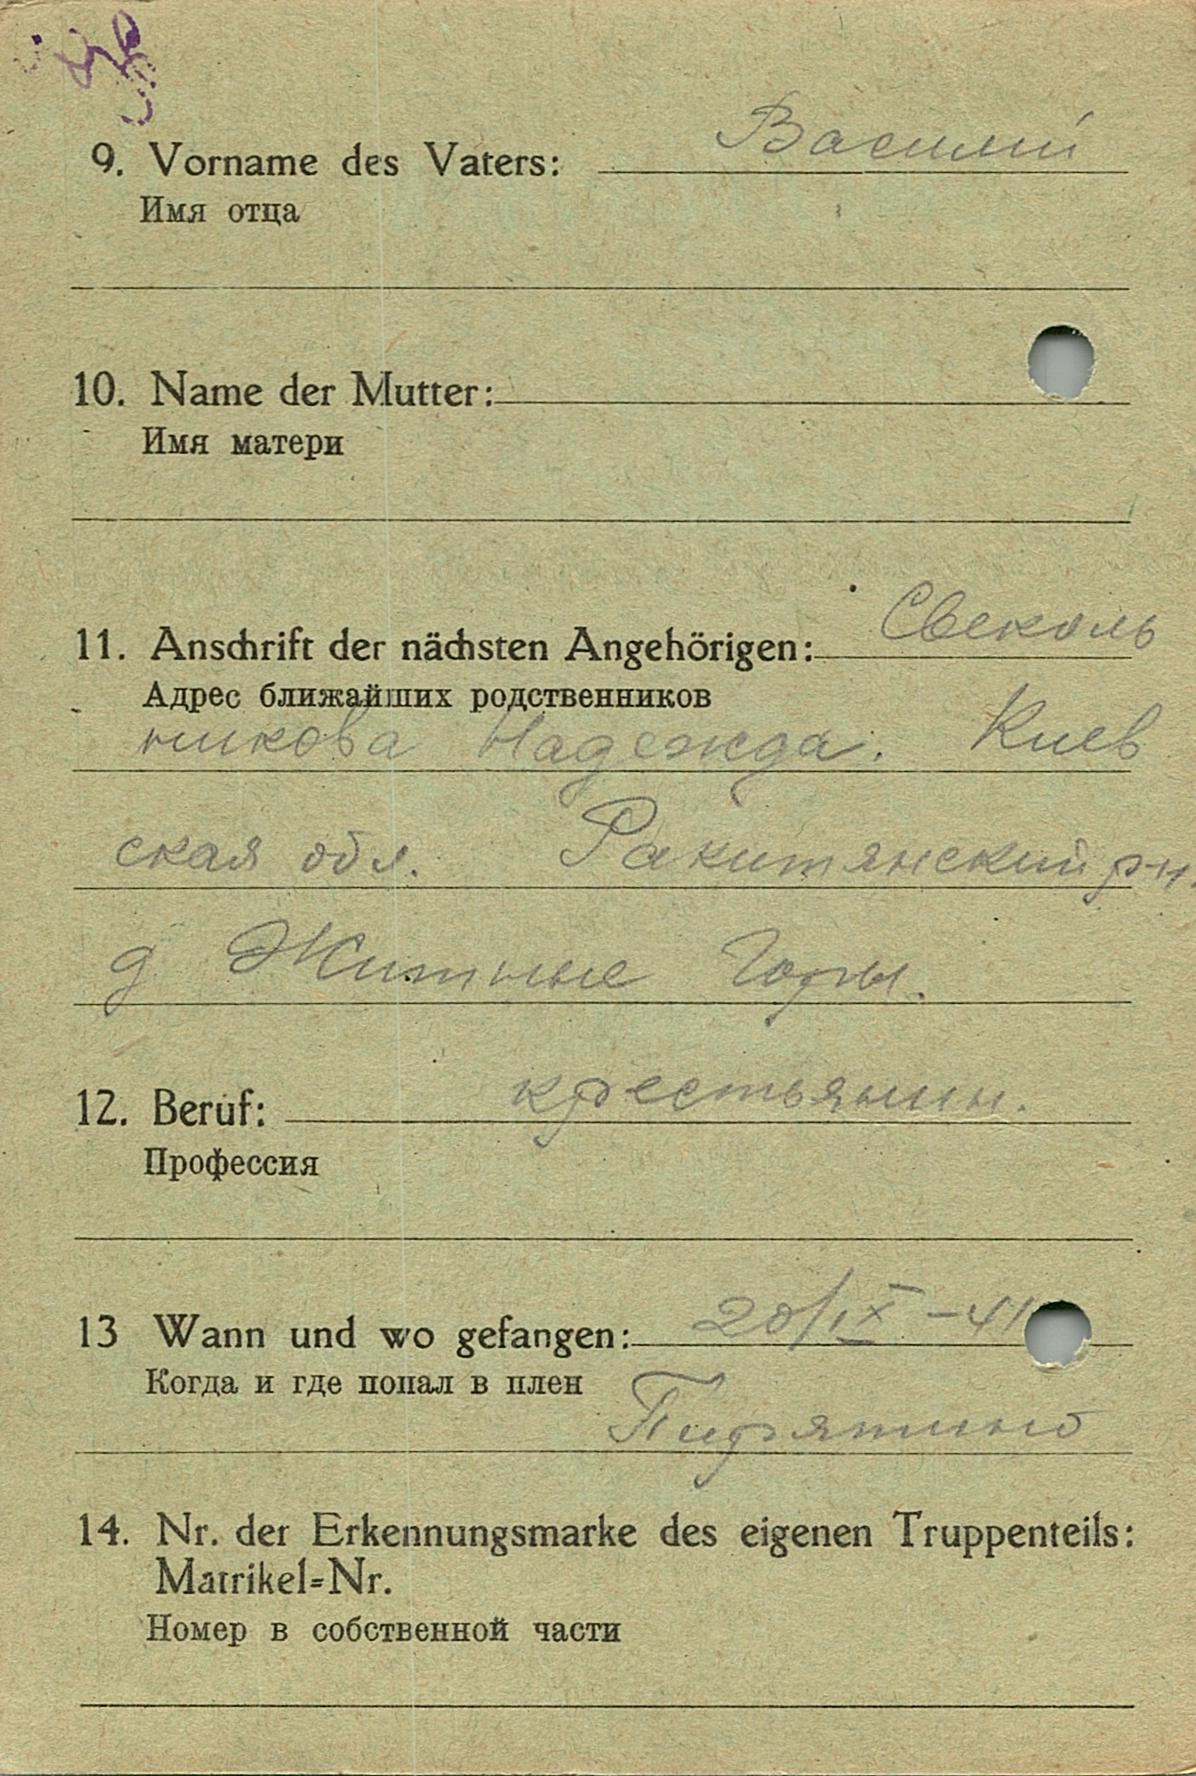 9. Vorname des Vaters: Василий
Имя отца
10. Name der Mutter:
Имя матери
11. Anschrift der nächsten Angehörigen: Свеколь
Адрес ближайших родственников
никова Надежда. Киев
ская обл. Ракитянский р-н.
д Житные Горы.
12. Beruf: крестьянин.
Профессия
13 Wann und wo gefangen: 20/IX-41
Когда и где попал в плен
Пирятино
14. Nr. der Erkennungsmarke des eigenen Truppenteils:
Matrikel=Nr.
Номер в собственной части